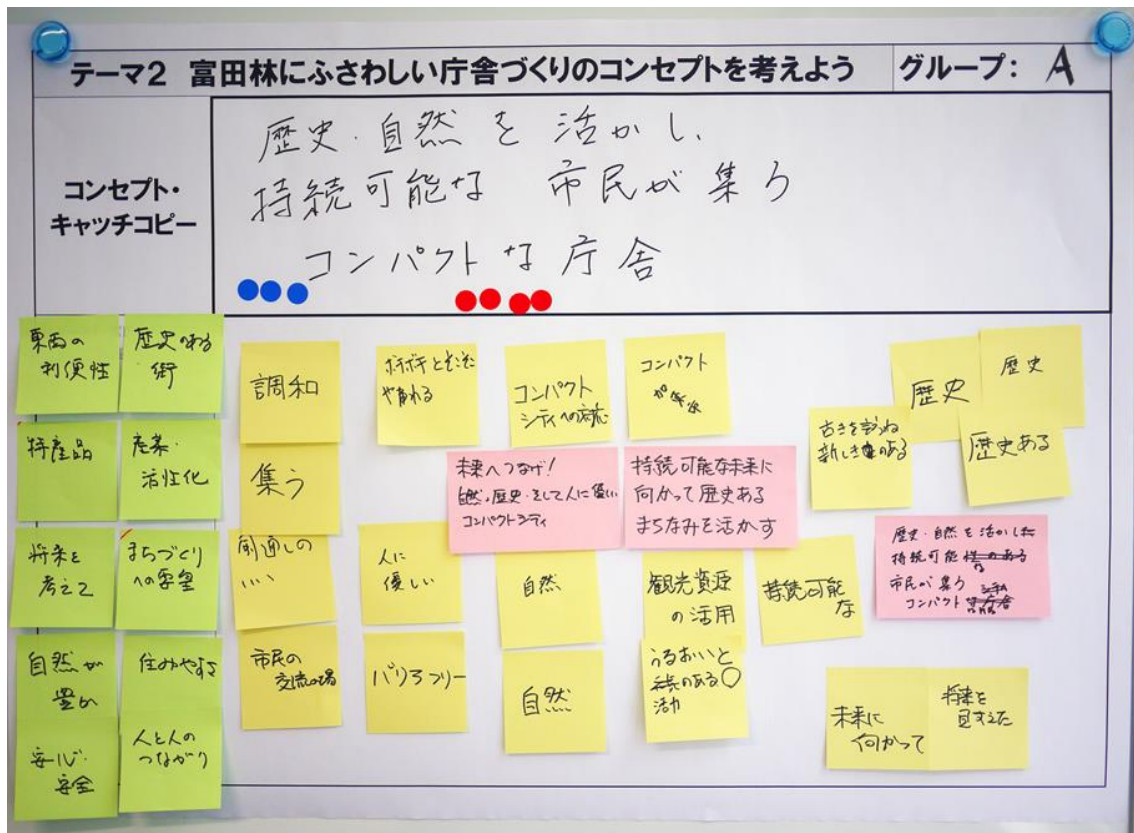 テーマ2 富田林にふさわしい庁舎づくりのコンセプトを考えよう
グループ: A
コンセプト・
キャッチコピー
歴史・自然を活かし、
持続可能な 市民が集う
コンパクトな庁舎
東西の
利便性
歴史のある
街
特産品
産業・
活性化
将来を
考えて
まちづくり
への要望
自然が
豊か
住みやすさ
安心・
安全
人と人の
つながり
調和
集う
風通しの
いい
市民の
交流の場
人に
優しい
バリアフリー
コンパクト
シティへの対応
コンパクト
未来へつなげ!
自然・歴史・そして人に優しい
コンパクトシティ
持続可能な未来に
向かって歴史ある
まちなみを活かす
自然
自然
観光資源
の活用
うるおいと
活力
持続可能
な
古きを訪ね
歴史
歴史
歴史ある
歴史・自然を活かした
持続可能
な
市民が集う
コンパクト
未来に
向かって
将来を
見すえた